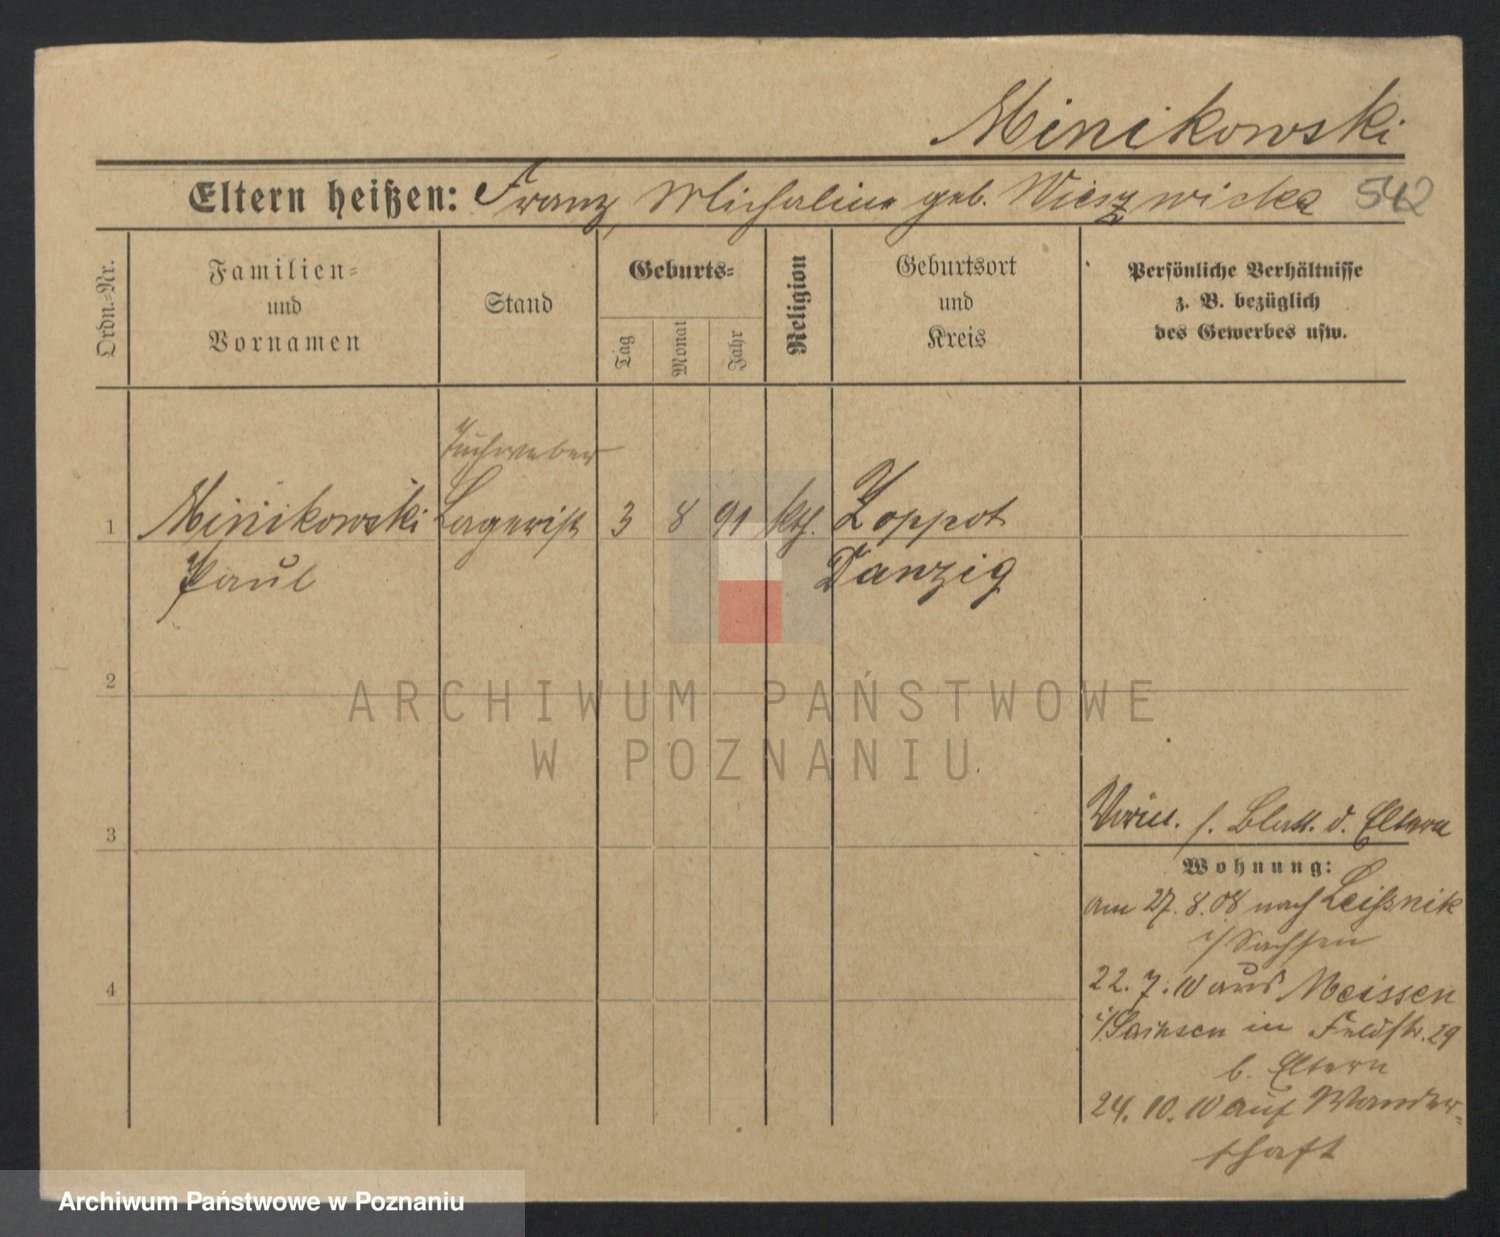 Minikowski
Eltern heißen: Franz, Michaline geb. Wieszwicka 542
Ordn.-Nr.
Familien-
und
Vornamen
Stand
Geburts-
Tag
Monat
Jahr
Religion
Geburtsort
und
Kreis
Persönliche Verhältnisse
z. B. bezüglich
des Gewerbes usw.
Tuchweber
1 Minikowski Lagerist 3 8 91 kth. Zoppot
Paul Danzig
2
ARCHIWUM PAŃSTWOWE
W POZNANIU
3
s. Blatt. d. Eltern
Wohnung:
am 27. 8. 08 nach Leißnik
i/Sachsen
4
22. 7. 10 aus Meissen
i/Sachsen in Feldstr. 29
b. Eltern
24. 10. 10 auf Wander-
schaft
Archiwum Państwowe w Poznaniu